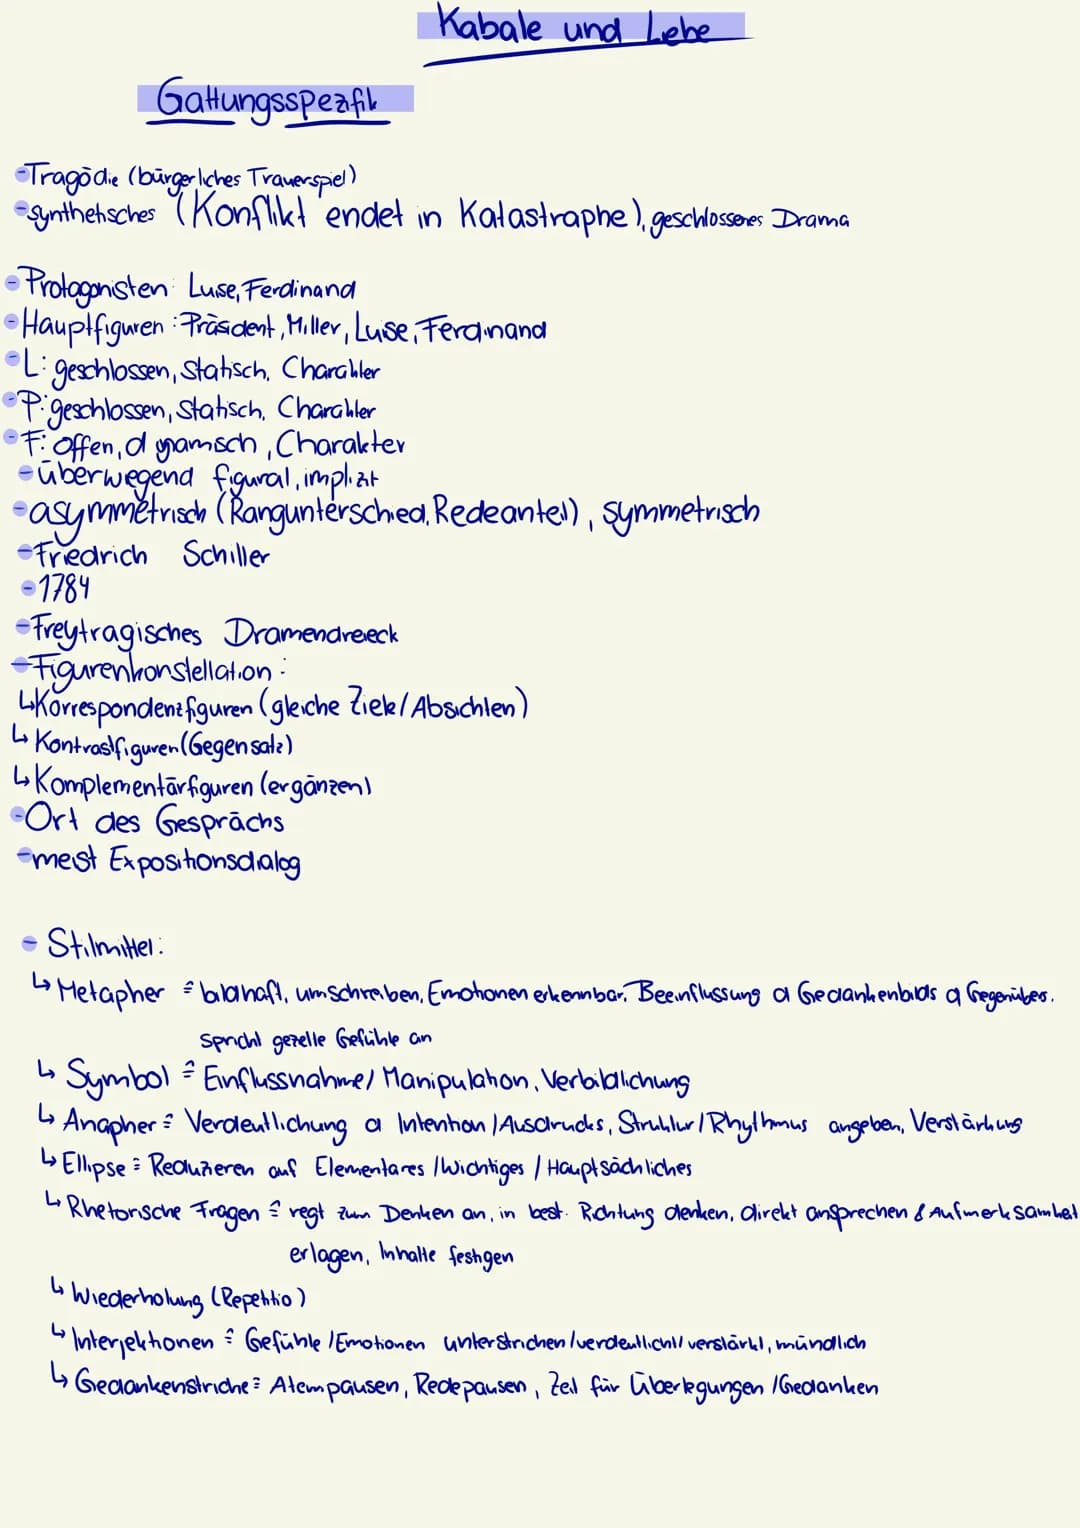 Kabale und Liebe
Gattungsspezifik
-Tragödie (bürgerliches Trauerspiel)
-synthetisches (Konflikt endet in Katastrophe), geschlossenes Drama
- Protagonisten: Luise, Ferdinand
- Hauptfiguren: Präsident, Miller, Luise, Ferdinand
- L: geschlossen, statisch, Charakter
- P: geschlossen, statisch, Charakter
- F: offen, dynamisch, Charakter
- überwiegend figural, implizit
- asymmetrisch (Rangunterschied, Redeanteil), symmetrisch
- Friedrich Schiller
- 1784
- Freytragisches Dramendreieck
- Figurenkonstellation:
↳ Korrespondenzfiguren (gleiche Ziele/Absichten)
↳ Kontrastfiguren (Gegensatz)
↳ Komplementärfiguren (ergänzen)
- Ort des Gesprächs
- meist Expositionsdialog
- Stilmittel:
↳ Metapher ≙ bildhaft, umschreiben, Emotionen erkennbar, Beeinflussung d Gedankenbilds d Gegenübers.
Spricht gezielle Gefühle an
↳ Symbol ≙ Einflussnahme/Manipulation, Verbildlichung
↳ Anapher ≙ Verdeutlichung d Intention/Ausdrucks, Struktur/Rhythmus angeben, Verstärkung
↳ Ellipse ≙ Reduzieren auf Elementares/Wichtiges/Hauptsächliches
↳ Rhetorische Fragen ≙ regt zum Denken an, in best. Richtung denken, direkt ansprechen & Aufmerksamkeit
erlagen, Inhalte festigen
↳ Wiederholung (Repetitio)
↳ Interjektionen ≙ Gefühle/Emotionen unterstrichen/verdeutlicht/verstärkt, mündlich
↳ Gedankenstriche ≙ Atempausen, Redepausen, Zeit für Überlegungen/Gedanken